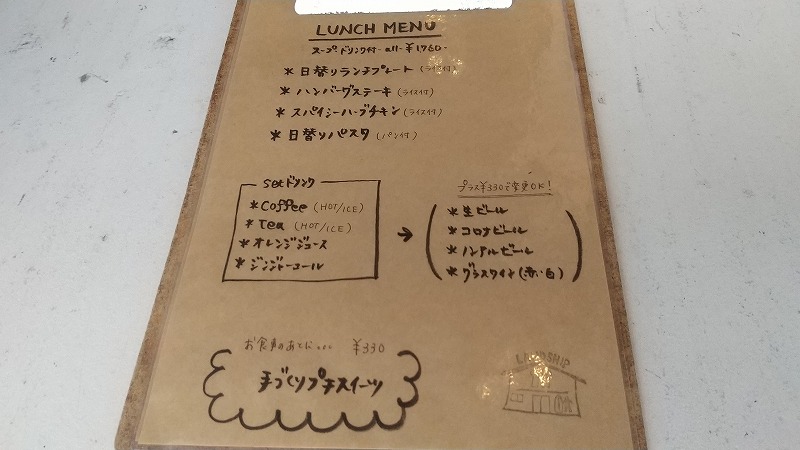 LUNCH MENU
スープドリンク付 -all- ¥1760-
* 日替りランチプレート (ライス付)
* ハンバーグステーキ (ライス付)
* スパイシーハーブチキン (ライス付)
* 日替りパスタ (パン付)
setドリンク
* Coffee (HOT/ICE)
* Tea (HOT/ICE)
* オレンジジュース
* ジンジャーエール
→
プラス¥330で変更OK!
* 生ビール
* コロナビール
* ノンアルビール
* グラスワイン (赤・白)
お食事のあとに... ¥330
手づくりプチスイーツ